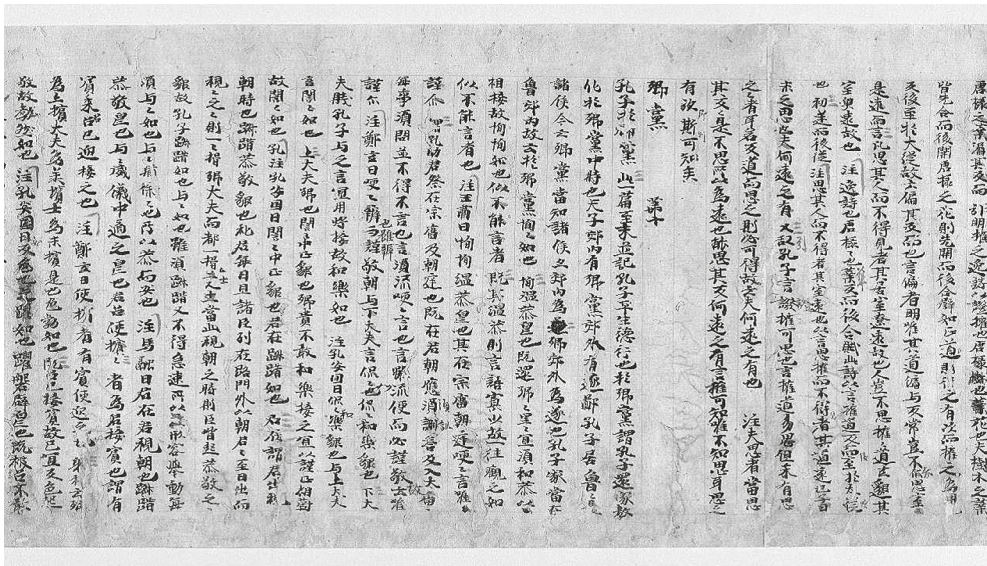 唐棣之華偏其反而 引明權之逸詩以證權也唐棣逸詩也華花也夫樹木之華
皆先合而後開唐棣之花則先開而後合譬如正道則行之有次而權之為用
反後至於大從故云偏其反而也言偏者明唯其道偏與反常也豈不爾思室
是遠而言凡思其人而不得見者其居室遼遠故也人豈不思權權道玄邈其
室奧遠故也 注逸詩也唐棣棣也華反而後合賦此詩以言權道反而至於大順
也初逆而後從 注思其人而不得者其室遠也以言思權而不得者其道遠也子曰
未之思也夫何遠之有 又引孔子言證權可思也言權道易思但未有思
之者耳若反道而思之則必可得故云夫何遠之有也 注夫思者當思
其反反是不思所以為遠也能思其反何遠之有言權可知唯不知思耳思之
有次斯可知矣
鄉黨 第十
孔子於鄉黨 此一篇至末並記孔子平生德行也於鄉黨謂孔子還家教
化於鄉黨中時也天子郊內有鄉黨郊外有遂鄙孔子居魯魯是
諸侯今云鄉黨當知諸侯亦郊內為鄉郊外為遂也孔子家當在
魯郊內故云於鄉黨恂恂如也 恂恂溫恭皃也既還鄉鄉里宜須和恭以
相接故恂恂如也似不能言者 既其溫恭則言語寡少故一往觀之如
似不能言者也 注王肅曰恂恂溫恭皃也其在宗廟朝廷便便言唯
謹尒 君助君祭在宗廟及朝廷也既在君朝應須酬荅及入大廟
每事須問並不得不言也言須流哽之言也言雖流便而必謹敬故云唯
謹尒 注鄭玄曰便便辯也雖辯而謹敬朝與下大夫言侃侃如也 侃侃和樂皃也下大
夫賤孔子與之言宜用將接故和樂如也 注孔安國曰侃侃和樂皃也與上大夫
言誾誾如也 上大夫卿也誾誾中正皃也卿貴不敢和樂接之宜以謹正相對
故誾誾如也 注孔安國曰誾誾中正皃也君在踧踖如也 君在謂君出視
朝時也踧踖恭敬皃也礼君每日旦諸臣列在路門外以朝君君至日出而
視之之則一一揖卿大夫而都一揖士當此視朝之時則臣皆起恭敬之
皃故孔子踧踖如也與與如也雖須踧踖又不得急速所以形容舉動每
須與與如也與與猶徐徐也所以恭而安也 注馬融曰君在君視朝也踧踖
恭敬皃也與與威儀中適之皃也君召使擯 擯者為君接賓也謂有
賓來君召己迎接之也 注鄭玄曰使擯者有賓使迎之也
為上擯大夫為承擯士為末擯是也色勃如也 既召己接賓故己宜變色起
敬故勃然如也 注孔安國曰必變色也足躩如也 躩盤辟皃也既被召不敢